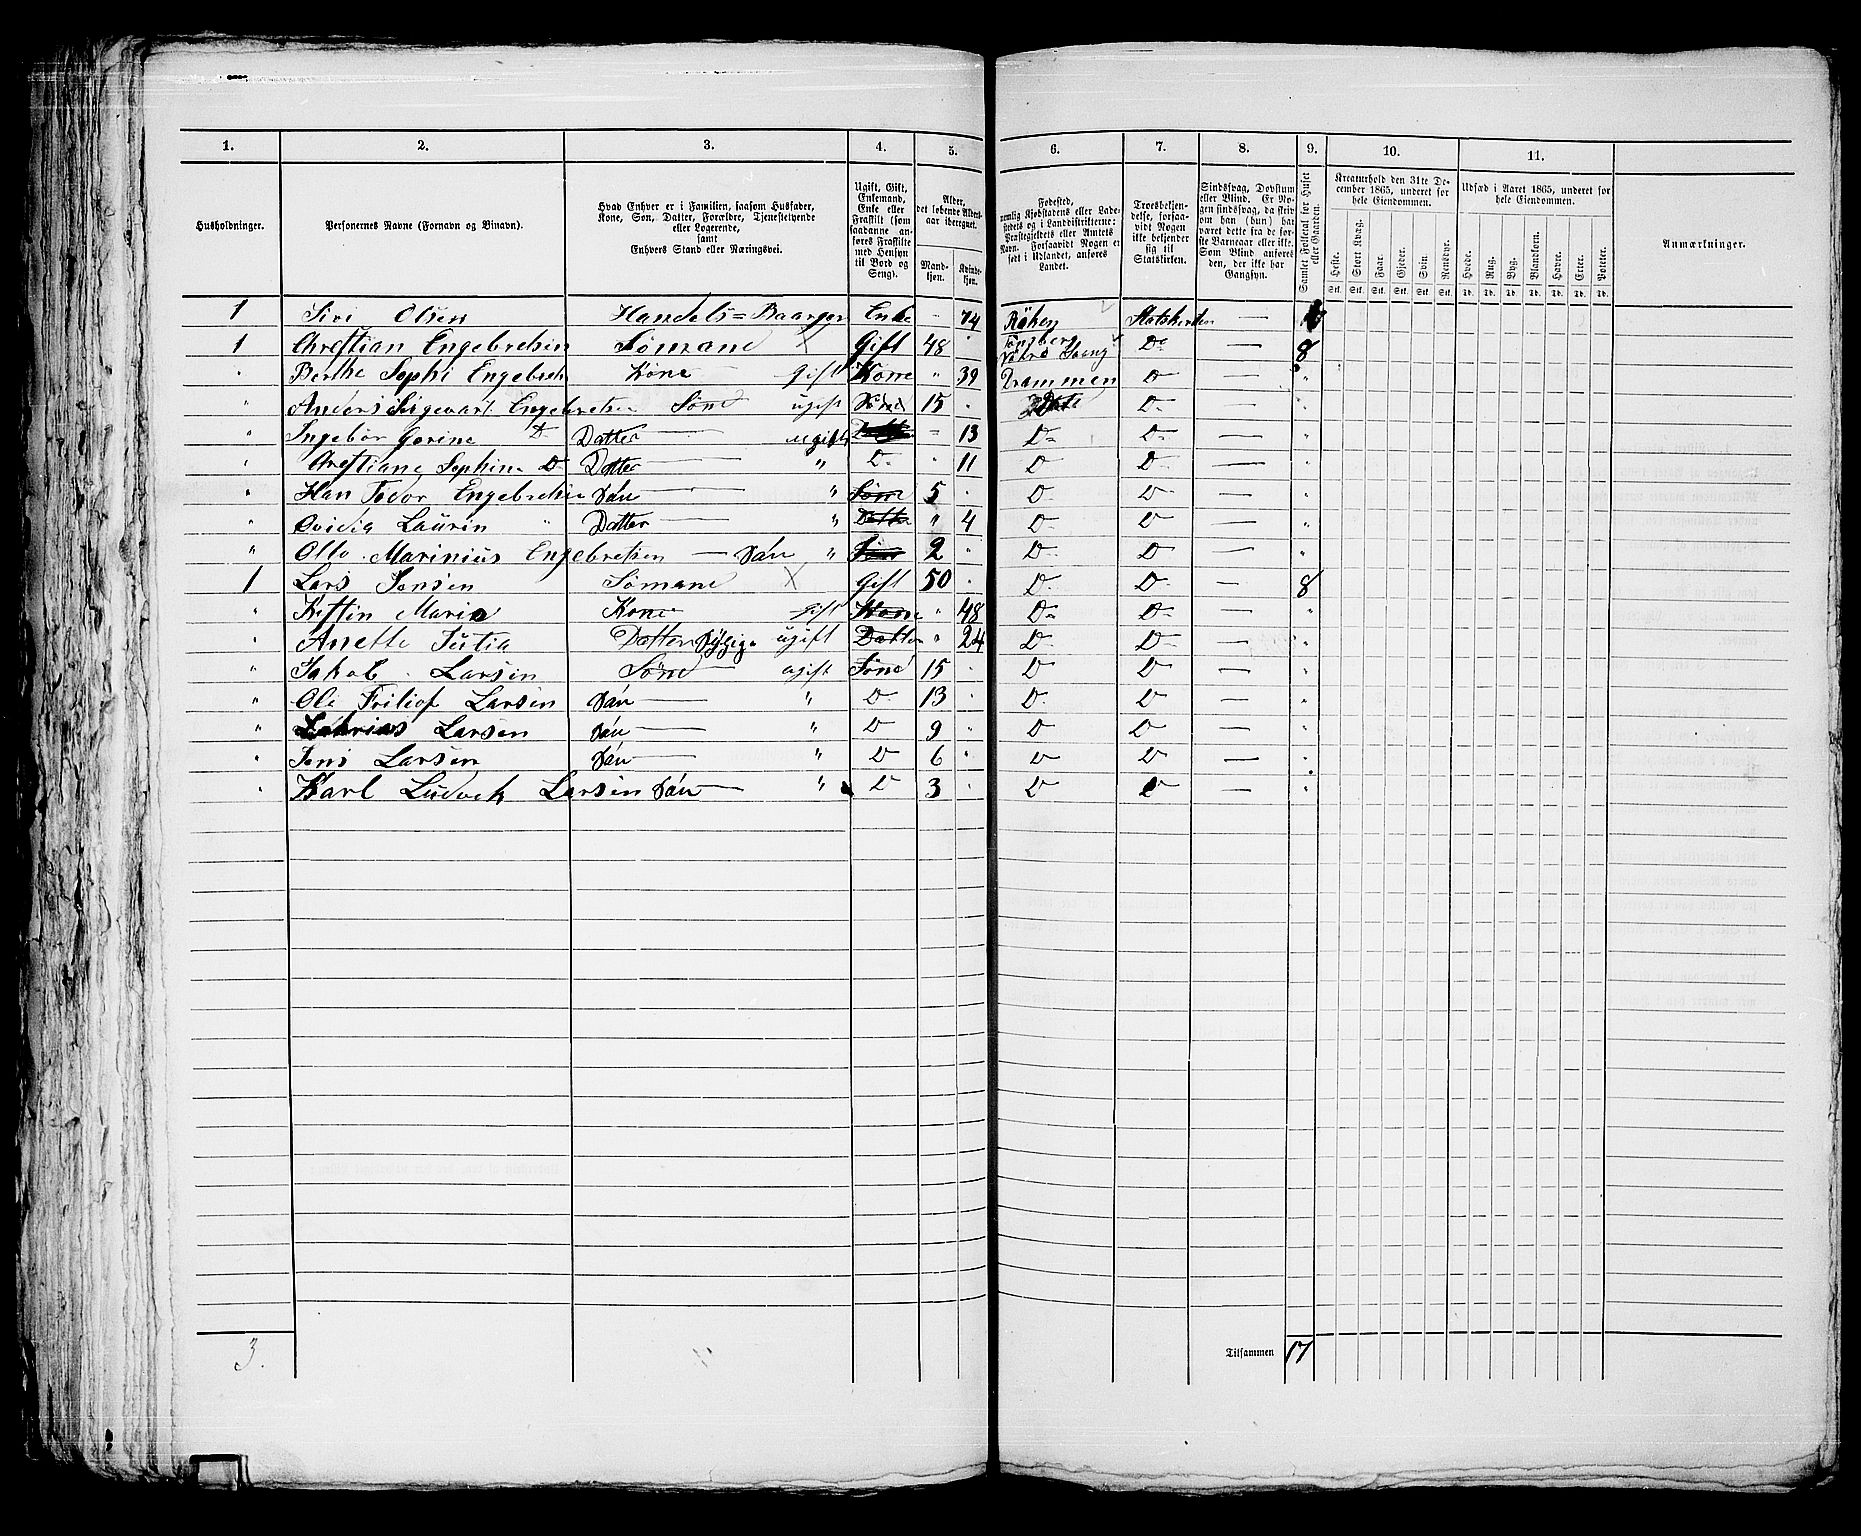 1. 2. 3. 4. 5. 6. 7. 8. 9. 10. 11.
Husholdninger.
Personernes Navne (Fornavn og Binavn).
Hvad Enhver er i Familien, saasom Husfader, Kone, Søn, Datter, Forældre, Tjenestetyende eller Logerende, samt Enhvers Stand eller Næringsvei.
Ugift, Gift, Enkemand, Enke eller Fraskilt (som saadanne anføres Fraskilte med Hensyn til Bord og Seng).
Alder, det løbende Alders-aar iberegnet.
Mandkjøn. Kvindekjøn.
Fødested, nemlig Kjøbstadens eller Ladestedets og i Landdistrikterne: Præstegjeldets eller Amtets Navn. Forsaavidt Nogen er født i Udlandet, anføres Landet.
Troesbekjendelse, forsaavidt Nogen ikke bekjender sig til Statskirken.
Sindssvag, Døvstum eller Blind. Er Nogen sindssvag, da skriv om han (hun) har været dette fra de første Barneaar eller ikke. Som Blind anføres den, der ikke har Gangsyn.
Samlet Folketal for Huset eller Gaarden.
Kreaturhold den 31te December 1865, underet for hele Eiendommen.
Heste. Stort Kvæg. Faar. Gjeder. Svin. Rensdyr.
Stk. Stk. Stk. Stk. Stk. Stk.
Udsæd i Aaret 1865, underet for hele Eiendommen.
Hvede. Rug. Byg. Blandkorn. Havre. Erter. Poteter.
Td. Td. Td. Td. Td. Td. Td.
Anmærkninger.
1 Sivi Olsen Handels= Enke - 74 Røken Statskirken —
1 Chrestian Engebretsen Sømand X Gift 48 " Tønsberg D° — 8
" Berthe Sophi Engebretsen Kone Gift Kone " 39 Drammen D — "
" Anders Sigevart Engebretsen Sønd ugift Sønd 15 " D° — "
" Ingebor Gorine D° Datter — ugift - 13 D° D° — "
" Chrestiane Sophine D° Datter — " D° " 11 D D° — "
" Han Tedor Engebretsen Søn — " Sønd 5 " D° D — "
" Ovidia Laurin " Datter — " Datter " 4 D D — "
" Otto Marinius Engebretsen — Søn " 2 " D° D — "
1 Lars Jensen Sømand X Gift 50 " D° D° — 8
" Kestin Maria Kone Gift Kone " 48 D° D° — "
" Anette Jutia Datter ugift Datter " 24 D° D° — "
" Jakob Larsen Sønd ugift Sønd 15 " D D — "
" Ole Fritiof Larsen Søn — " D° 13 " D° D — "
" Larsen Søn — " D 9 " D D — "
" Jens Larsen Søn — " D 6 " D D — "
" Karl Ludvek Larsen Søn — " D 3 " D D — "
3. Tilsammen 17